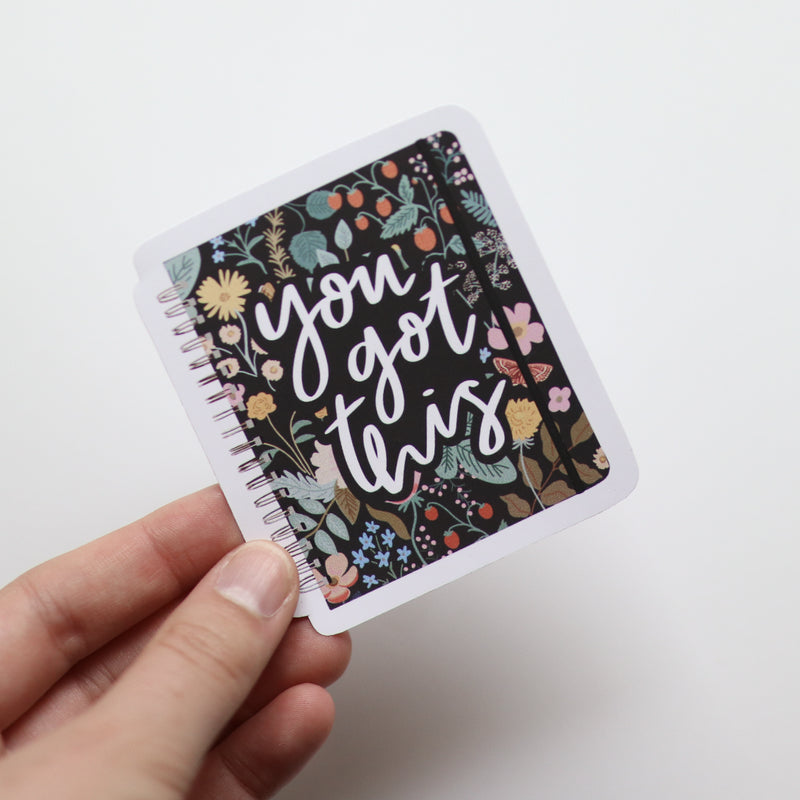 you
got
this